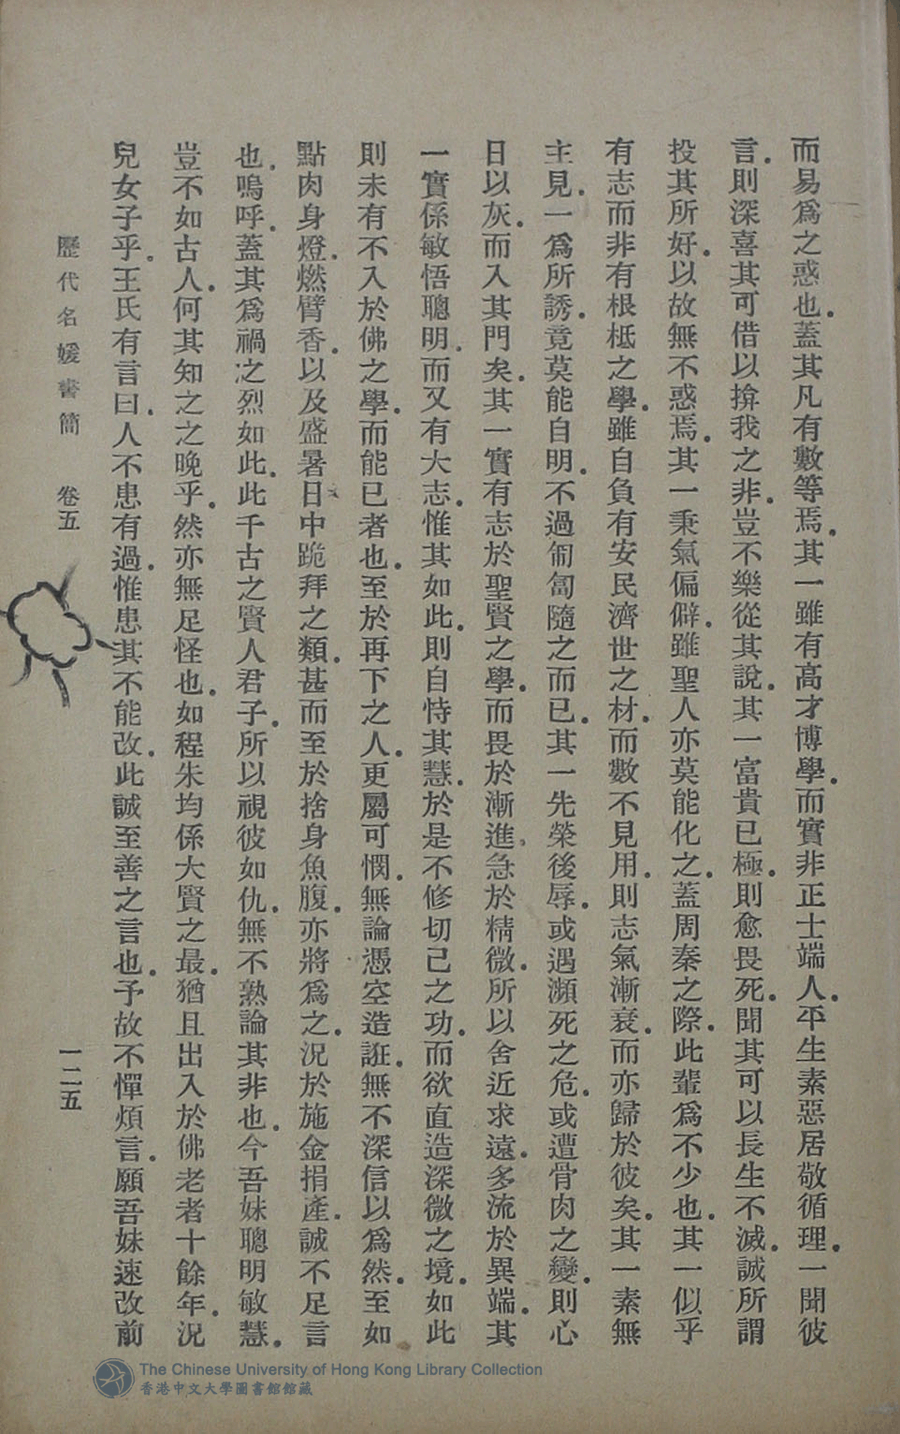 而易爲之惑也。蓋其凡有數等焉。其一雖有高才博學。而實非正士端人。平生素惡居敬循理。一聞彼
言。則深喜其可借以揜我之非。豈不樂從其說。其一富貴已極。則愈畏死。聞其可以長生不滅。誠所謂
投其所好。以故無不惑焉。其一秉氣偏僻。雖聖人亦莫能化之。蓋周秦之際。此輩爲不少也。其一似乎
有志而非有根柢之學。雖自負有安民濟世之材。而數不見用。則志氣漸衰。而亦歸於彼矣。其一素無
主見。一爲所誘。竟莫能自明。不過匍匐隨之而已。其一先榮後辱。或遇瀕死之危。或遭骨肉之變。則心
日以灰。而入其門矣。其一實有志於聖賢之學。而畏於漸進。急於精微。所以舍近求遠。多流於異端。其
一實係敏悟聰明。而又有大志。惟其如此。則自恃其慧。於是不修切己之功。而欲直造深微之境。如此
則未有不入於佛之學。而能已者也。至於再下之人。更屬可憫。無論憑空造誑。無不深信以爲然。至如
點肉身燈。燃臂香。以及盛暑日中跪拜之類。甚而至於捨身魚腹。亦將爲之。況於施金捐產。誠不足言
也。嗚呼。蓋其爲禍之烈如此。此千古之賢人君子。所以視彼如仇。無不熟論其非也。今吾妹聰明敏慧。
豈不如古人。何其知之之晚乎。然亦無足怪也。如程朱均係大賢之最。猶且出入於佛老者十餘年。況
兒女子乎。王氏有言曰。人不患有過。惟患其不能改。此誠至善之言也。予故不憚煩言。願吾妹速改前
歷代名媛書簡 卷五 一二五
The Chinese University of Hong Kong Library Collection
香港中文大學圖書館館藏